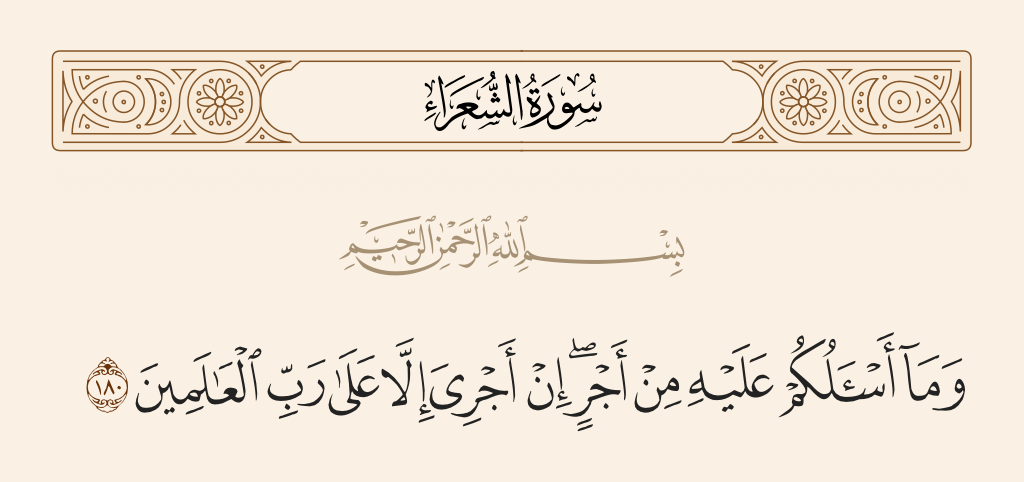 سُورَةُ الشُّعَرَاءِ
بِسْمِ ٱللَّهِ ٱلرَّحْمَٰنِ ٱلرَّحِيمِ
وَمَآ أَسْـَٔلُكُمْ عَلَيْهِ مِنْ أَجْرٍۖ إِنْ أَجْرِىَ إِلَّا عَلَىٰ رَبِّ ٱلْعَٰلَمِينَ ١٨٠